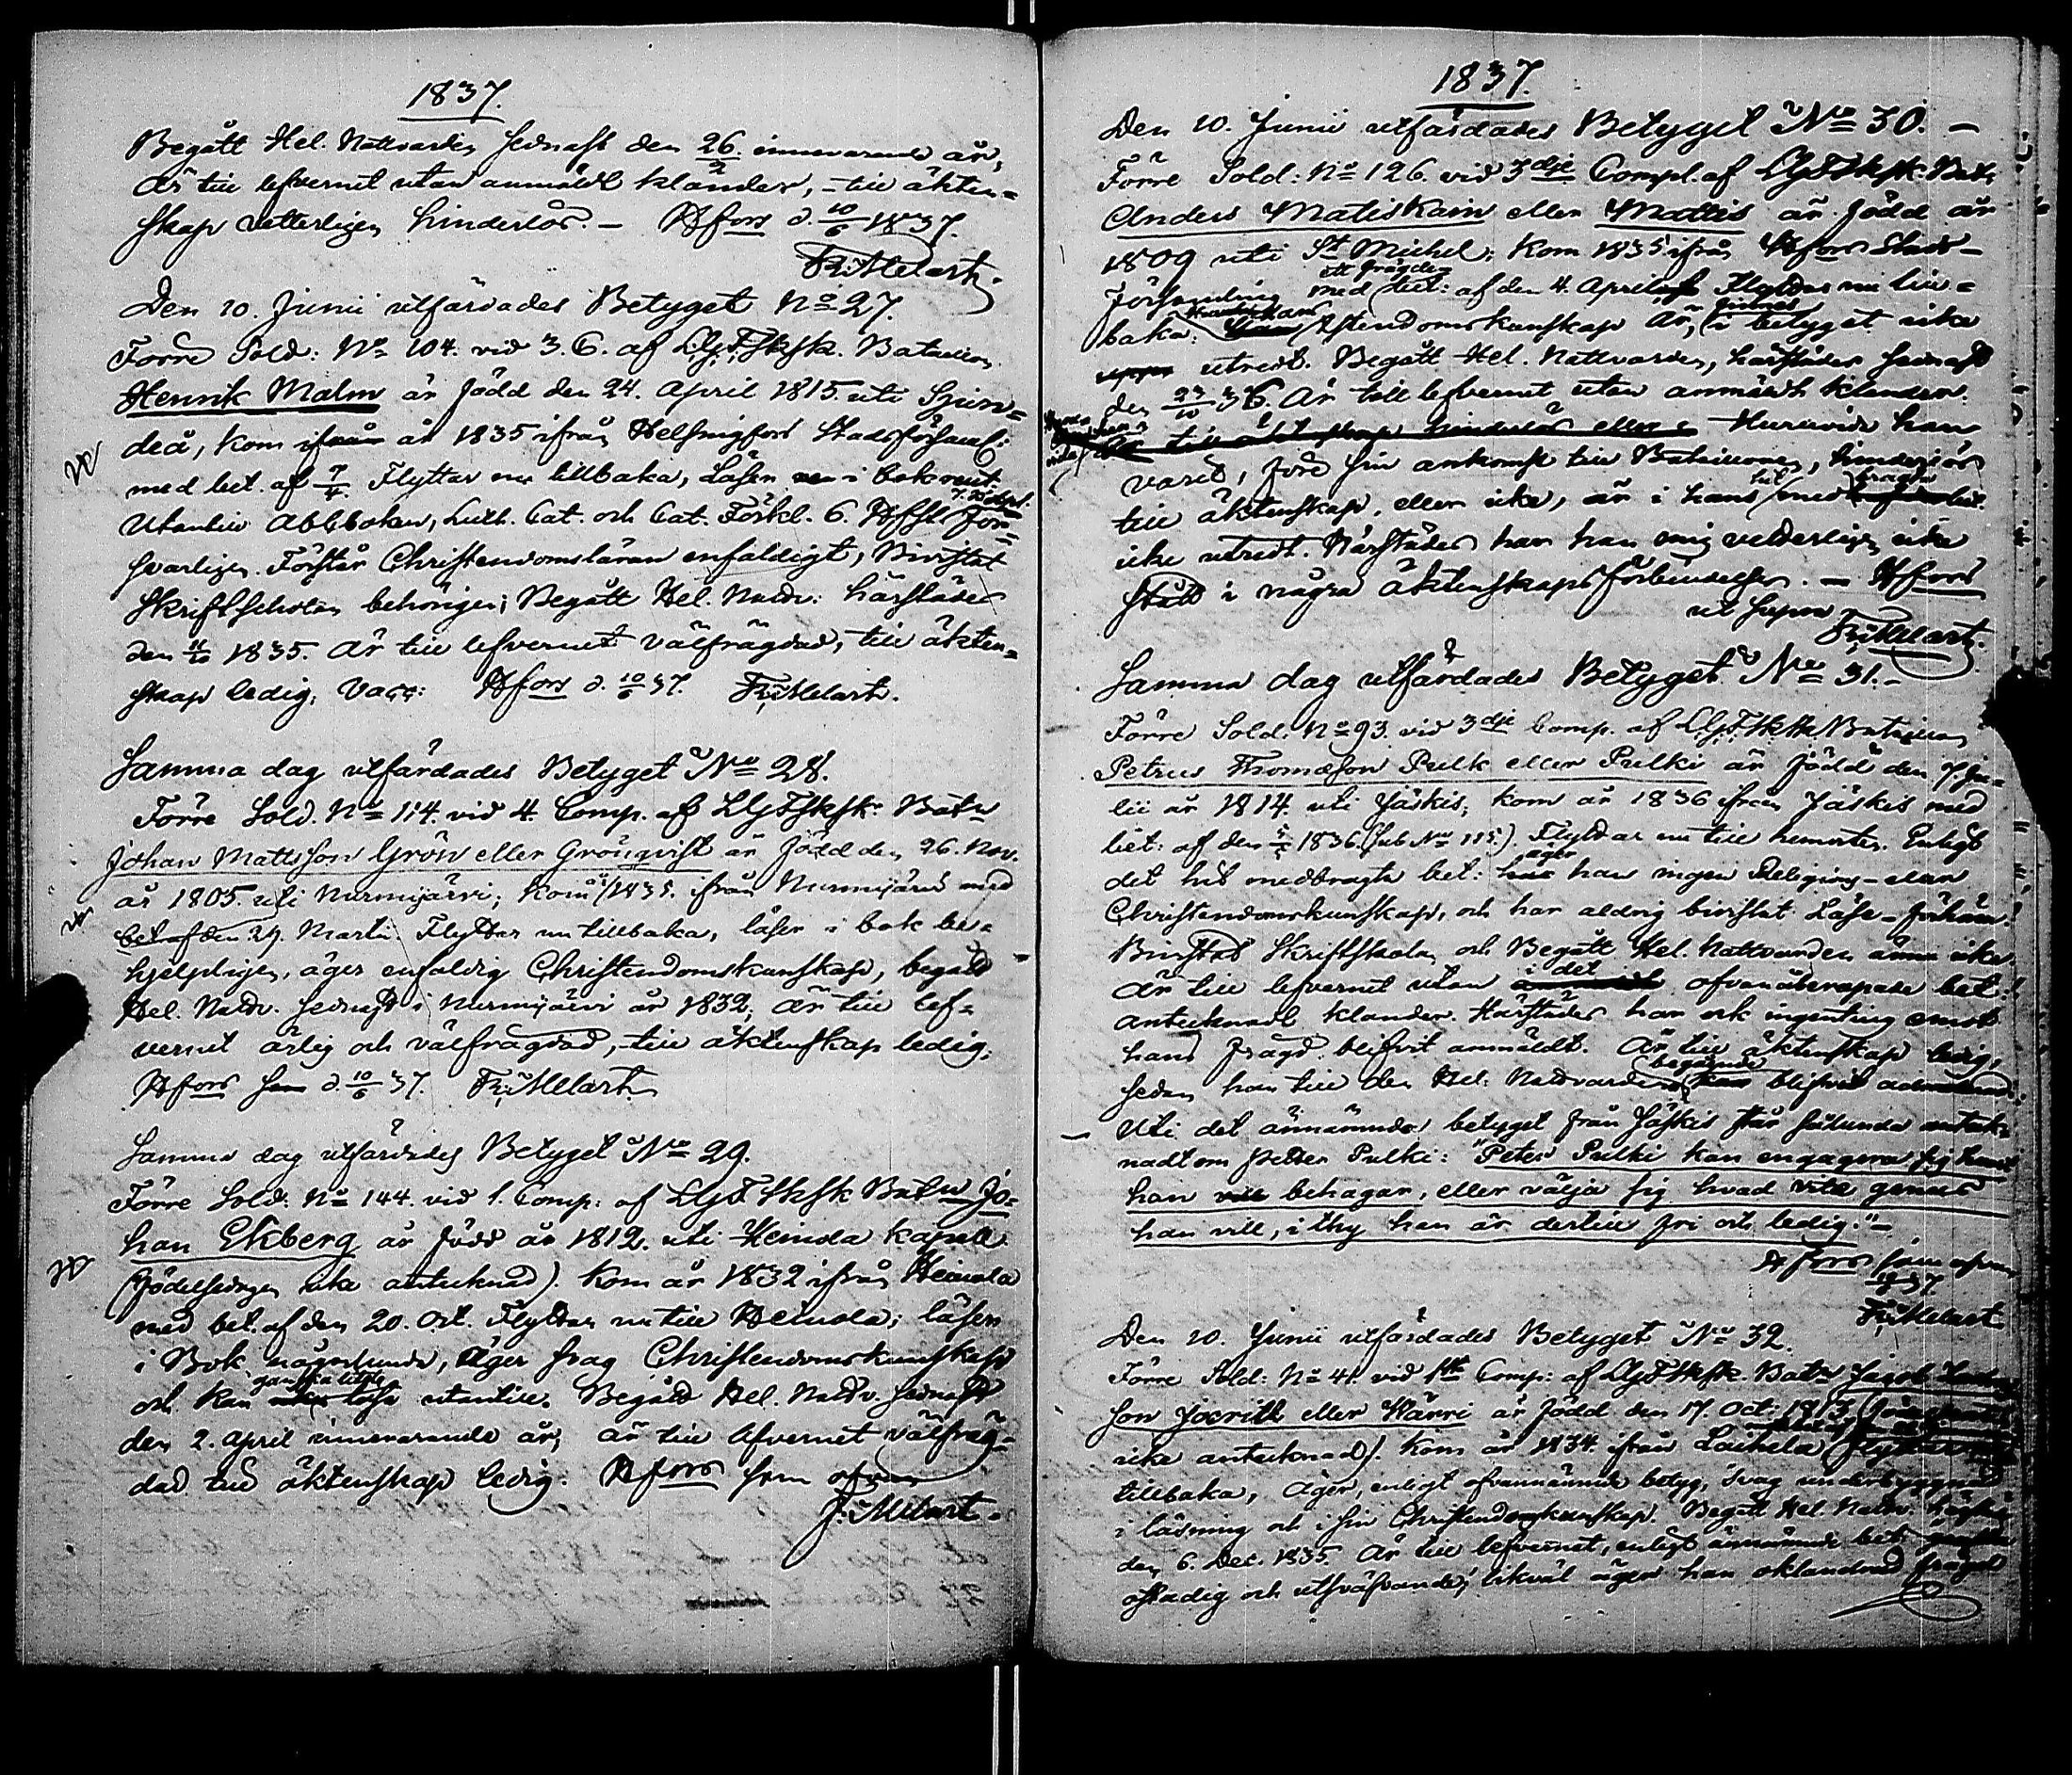 1837.
Begått Hel. Nattvarden sednast den 26/2 innevarande år,
är till lefvernet utan anmäldt klander, – till äkten=
skap vetterligen hinderlös. – Hfors d. 10/6 1837.
Fr: Melart.
Den 10. Junii utfärdades Betyget No 27.
Förre Sold: No 104. vid 3. C. af Bataillon
Henrik Malm är född den 24. April 1815. uti Sjun=
deå, kom år 1835 ifrån Helsingfors Stadsförsaml:
med bet. af 7/4. Flyttar nu tillbaka, Läser i bok rent
Utantill ABCboken, Luth. Cat. och Cat. Förkl. 6. för=
svarligen. Förstår Christendomsläran enfaldigt, Bivistat
Skriftscholan behörigen; Begått Hel. Nattv: härstädes
den 1835. Är till lefvernet välfrägdad, till äkten=
skap ledig, Hfors d. 10/6 37. Fr: Melart.
Samma dag utfärdades Betyget No 28.
Förre Sold. No 114. vid 4. Comp. af Batn
Johan Mattsson Grön eller Grönqvist är född den 26. Nov.
år 1805. uti Nurmijärvi; kom år 1835. ifrån Nurmijärvi med
bet af den 29. Martii. Flyttar nu tillbaka, läser i bok be=
hjelpligen, äger enfaldig Christendomskunskap, begått
Hel. Nattv. sednast i Nurmijärvi år 1832; är till lef=
vernet ärlig och välfrägdad, – till äktenskap ledig.
Hfors d 10/6 37. Fr: Melart
Samma dag utfärdades Betyget No 29.
Förre Sold. No 144. vid 1. Comp: af Batn Jo=
han Ekberg är född år 1812. uti Heinola kapell
(födelsedagen icke antecknad). Kom år 1832 ifrån Heinola
med bet. af den 20. Oct. Flyttar nu till Heinola; läser
i Bok någorlunda, äger svag Christendomskunskap
och kan ganska litet läsa utantill. Begått Hel. Nattv. sednast
den 2. April innevarande år; är till lefvernet välfräg=
dad till äktenskap ledig. Hfors som ofvan
F: Melart.
1837.
Den 10. Junii utfärdades Betyget No 30. –
Förre Sold: No 126. vid 3dje Compl. af Bat:
Anders Matiskain eller Mattis är född år
1809 uti St Michel; kom 1835 ifrån Hfors Stads=
församling med bet: af den 4. April Flyttar nu till=
baka. Christendomskunskap är, i betyget icke
utredt. Begått Hel. Nattvarden, härstädes sednast
den 23/10 36. Är till lefvernet utan anmäldt klander.
Huruvida han
varit, före sin ankomst till Bataillonen, hinderlös
till äktenskap, eller icke, är i hans hit medbragta bet.
icke utredt. Härstädes har han mig vetterligen icke
stådt i några äktenskapsförbindelser. – Hfors
ut supra
Fr: Melart.
Samma dag utfärdades Betyget No 31. –
Förre Sold. No 93. vid 3dje Comp. af Bataillon
Petrus Thomasson Pulk eller Pulki är född den 7. Ju=
lii år 1814. uti Jäskis; kom år 1836 ifrån Jäskis med
bet: af den 1836. (sub No 115.). Flyttar nu till hemorten. Enligt
det hit medbragta bet: äger han ingen Religions- eller
Christendomskunskap, och har aldrig bivistat Läse-förhören.
Bivistat Skriftskola och Begått Hel. Nattvarden ännu icke.
Är till lefvernet utan i det ofvanåberopade bet:
antecknadt klander. Härstädes har ock ingenting emot
hans frägd blifvit anmäldt. Är till äktenskap ledig,
sedan han till den Hel. Nattvardens begående blifvit
Uti det ännämnde betyget från Jäskis står sålunda anteck=
nadt om Petter Pulki: "Peter Pulki kan engagera sig hvart
han behagar, eller välja sig hvad genus
han vill, i thy han är dertill fri och ledig." –
Hfors som ofvan
10/6 37.
Fr: Melart
Den 10. Junii utfärdades Betyget No 32.
Förre Sold: No 41. vid Comp: af Batn Jacob
son eller Härri är född den 17. Oct. 1813
icke antecknad). Kom år 1834 ifrån Laihela
tillbaka, äger, enligt ofvannämnde betyg, svag underbyggnad
i läsning och i sin Christendomskunskap. Begått Hel. Nattv.
den 6. Dec. 1835. Är till lefvernet, enligt ännämnde bet.
ostadig och utsväfvande; likväl äger han oklandrad frägd